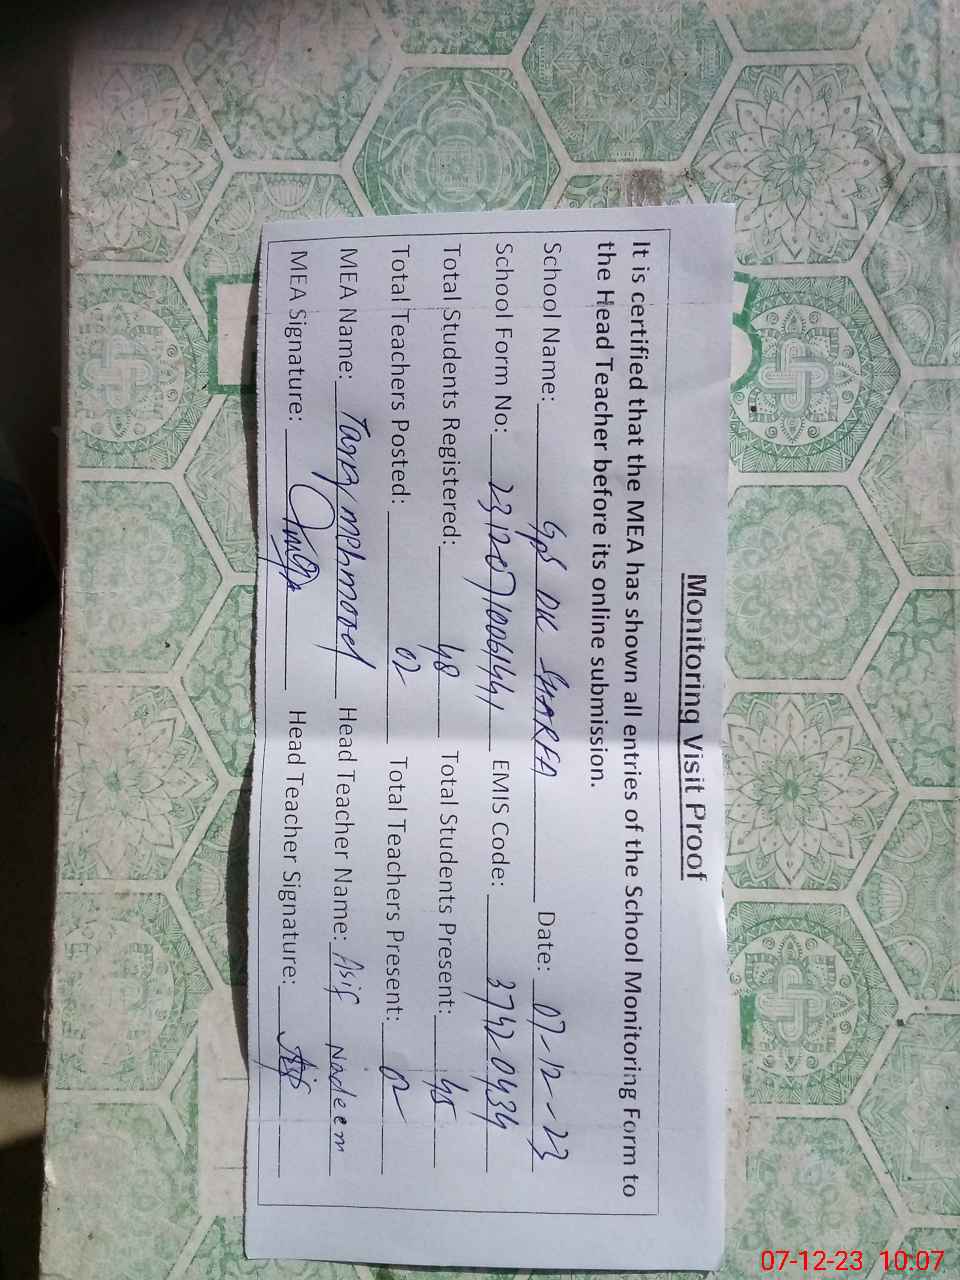 Monitoring Visit Proof
It is certified that the MEA has shown all entries of the School Monitoring Form to
the Head Teacher before its online submission.
School Name: GPS DK SHARFA Date: 07-12-23
School Form No: EMIS Code: 37420434
Total Students Registered: 48 Total Students Present: 45
Total Teachers Posted: 02 Total Teachers Present: 02
MEA Name: Tariq mehmood Head Teacher Name: Asif Nadeem
MEA Signature: Head Teacher Signature: Asif
07-12-23 10:07